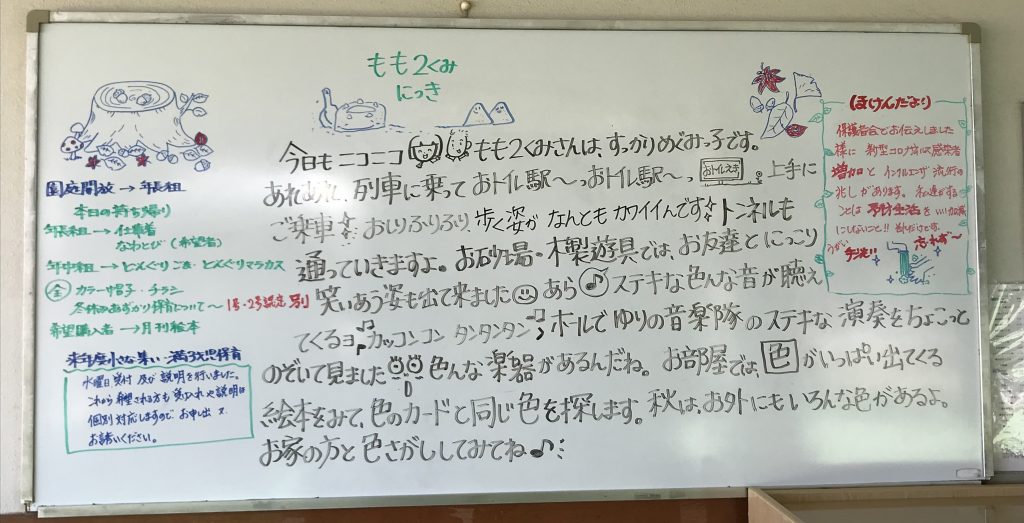 もも2くみ
にっき
今日も ニコニコ もも2くみさんは、すっかりめぐみっ子です。
あれあれ、列車に乗って おトイレ駅〜っおトイレ駅〜っ おトイレえき 上手に
ご乗車 おしりふりふり、歩く姿が なんとも カワイイんです トンネルも
通っていきますよ。お砂場・木製遊具では、お友達と にっこり
笑いあう姿も出て来ました あら ステキな色んな音が聴え
てくるヨ カッコンコン タンタンタン ホールで ゆりの音楽隊の ステキな 演奏をちょこっと
のぞいて見ました 色んな 楽器があるんだね。 お部屋では、色がいっぱい出てくる
絵本をみて、色のカードと同じ色を探します。秋は、お外にもいろんな色があるよ。
お家の方と 色さがししてみてね♪
園庭開放→年長組
本日の持ち帰り
年長組→仕事着
なわとび(希望者)
年中組→どんぐりごま・どんぐりマラカス
全 カラー帽子・チラシ
冬休みあずかり保育について〜1号・2号認定別
希望購入者→月刊絵本
来年度小さな集い・満3才児保育
水曜日 受付 及び 説明を行いました。
これから希望される方も 受入れや説明は
個別対応しますので お申し出
お誘いください。
ほけんだより
保護者会でお伝えしました
様に 新型コロナ 感染者
増加と インフルエンザ 流行の
兆しがあります。 私達ができる
ことは 予防生活を いい加減
にしないこと!!
うがい 手洗い 忘れず〜